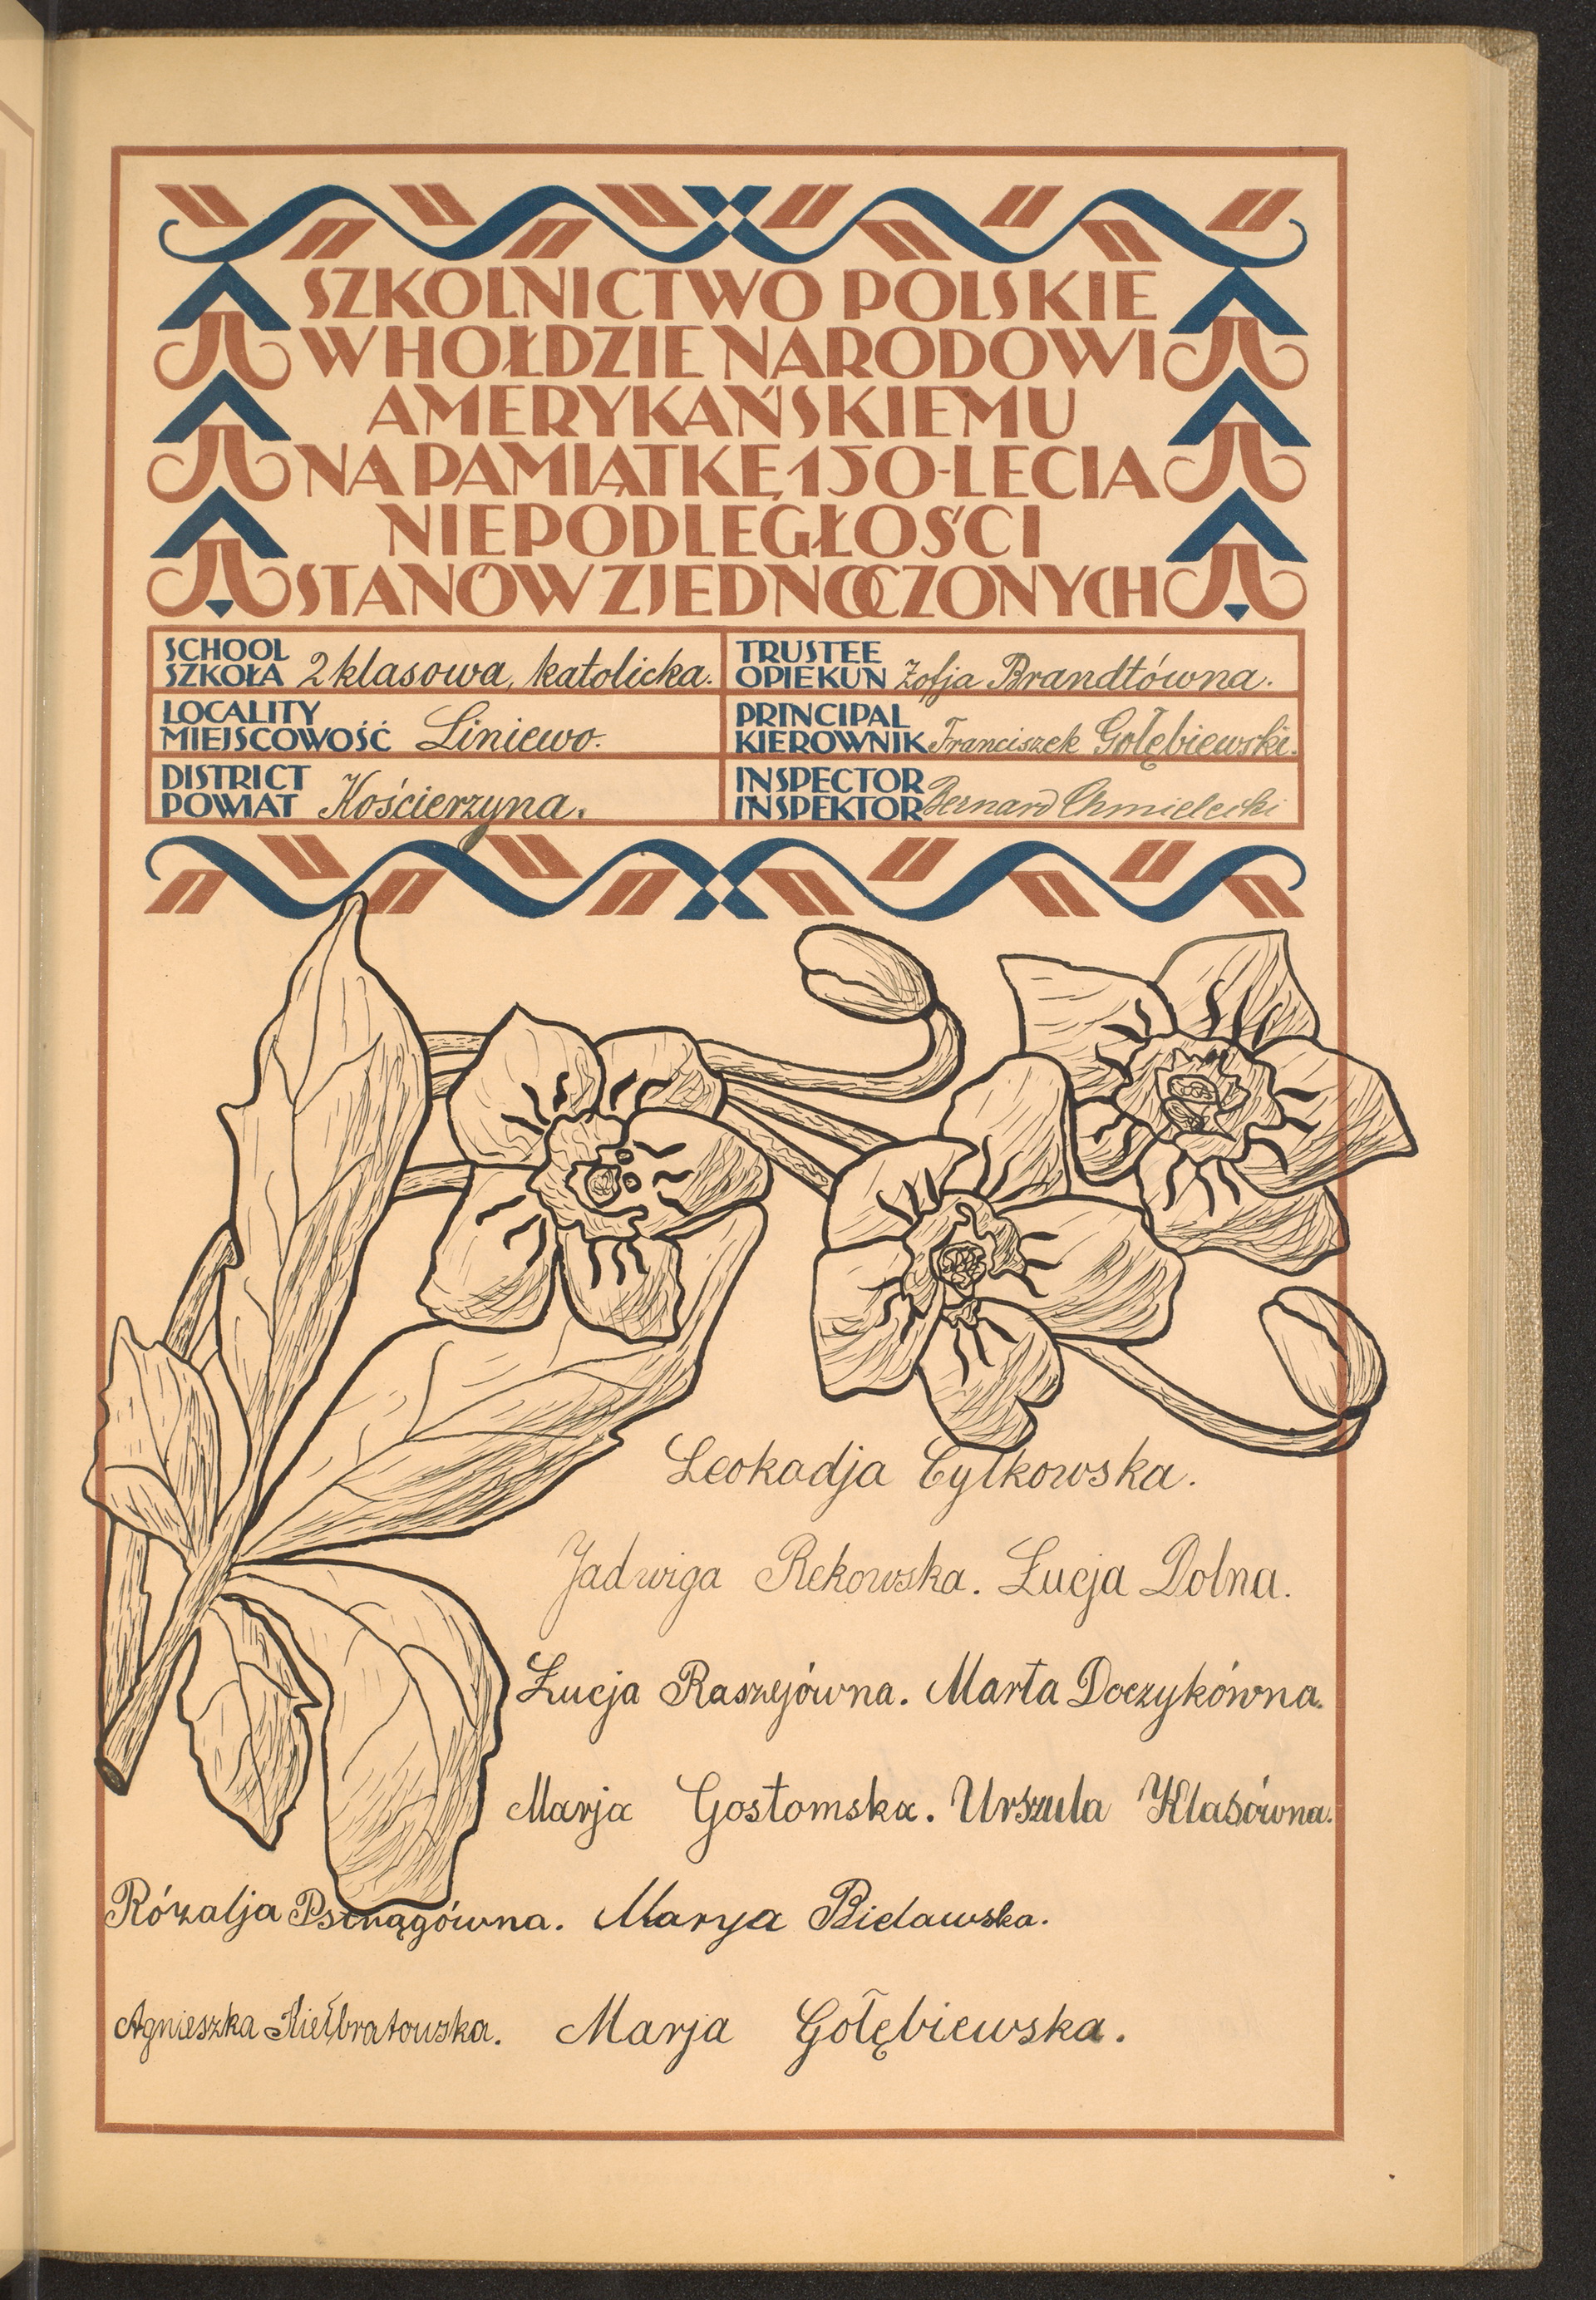 SZKOLNICTWO POLSKIE
W HOŁDZIE NARODOWI
AMERYKAŃSKIEMU
NA PAMIĄTKĘ 150-LECIA
NIEPODLEGŁOŚCI
STANÓW ZJEDNOCZONYCH
SCHOOL
SZKOŁA 2 klasowa, katolicka.
TRUSTEE
OPIEKUN Zofja Brandtówna.
LOCALITY
MIEJSCOWOŚĆ Liniewo.
PRINCIPAL
KIEROWNIK Franciszek Gołębiewski.
DISTRICT
POWIAT Kościerzyna.
INSPECTOR
INSPEKTOR Bernard Chmielecki
Leokadja Cyłkowska.
Jadwiga Rekowska. Łucja Dolna.
Łucja Raszejówna. Marta Doczykówna.
Marja Gostomska. Urszula Klasówna.
Rózalja Pstrągówna. Marya Bielawska.
Agnieszka Kiełbratowska. Marja Gołębiewska.